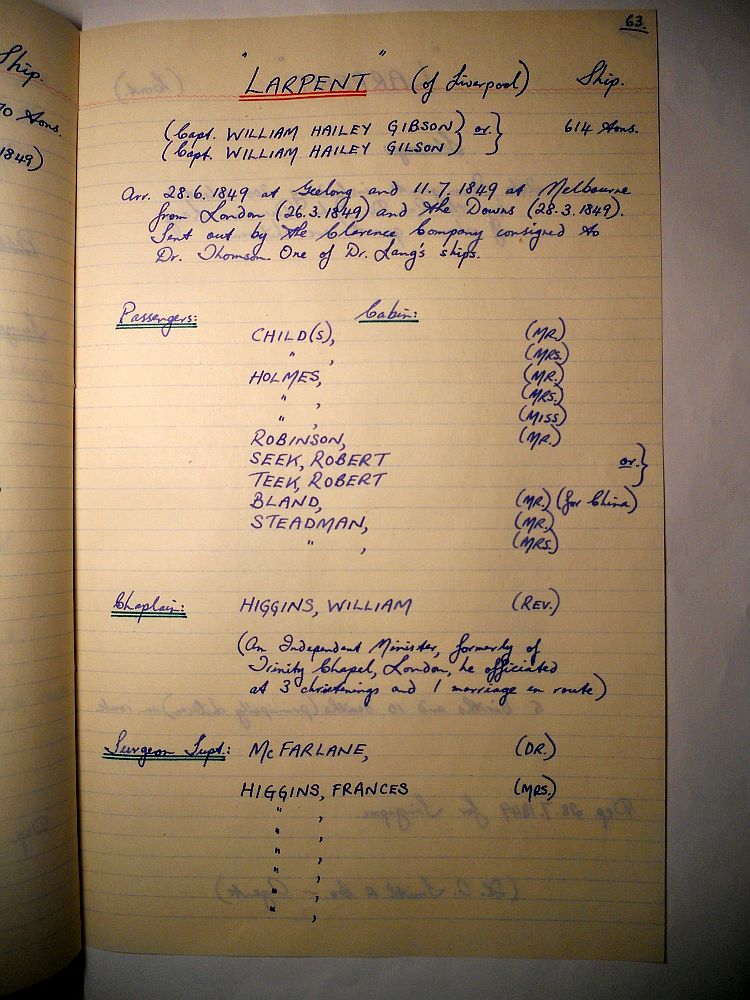 63.
Ship.
" LARPENT " (of Liverpool) Ship.
0 Tons.
(Capt. WILLIAM HAILEY GIBSON} or. } 614 Tons.
1849)
(Capt. WILLIAM HAILEY GILSON)
Arr. 28.6.1849 at Geelong and 11.7.1849 at Melbourne
from London (26.3.1849) and the Downs (28.3.1849).
Sent out by the Clarence Company consigned to
Dr. Thomson. One of Dr. Lang's ships.
Passengers: Cabin:
CHILD(S), (MR.)
" , (MRS.)
HOLMES, (MR.)
" , (MRS.)
" , (MISS)
ROBINSON, (MR.)
SEEK, ROBERT or. }
TEEK, ROBERT
BLAND, (MR.) (for China)
STEADMAN, (MR.)
" , (MRS.)
Chaplain: HIGGINS, WILLIAM (REV.)
(An Independent Minister, formerly of
Trinity Chapel, London, he officiated
at 3 christenings and 1 marriage en route)
Surgeon Supt.: McFARLANE, (DR.)
HIGGINS, FRANCES (MRS.)
" ,
" ,
" ,
" ,
" ,
" ,